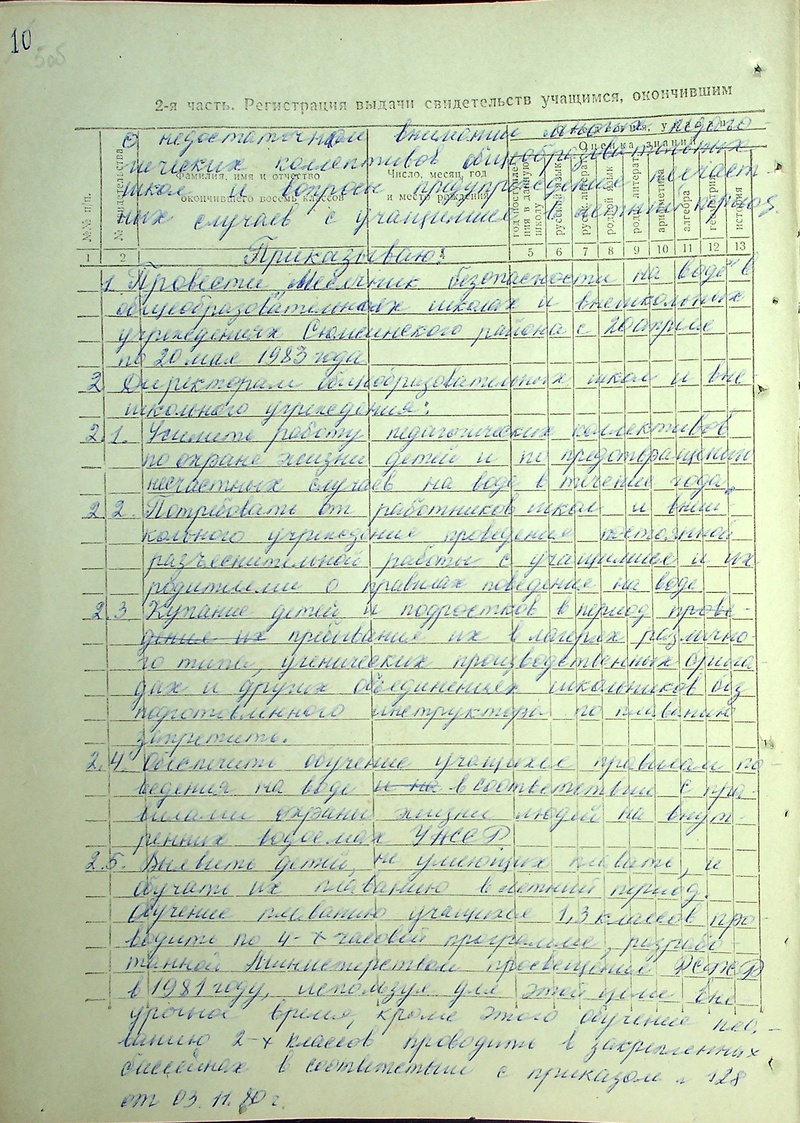 10
506
2-я часть. Регистрация выдачи свидетельств учащимся, окончившим
о недостаточном внимании многих педаго-
гических коллективов общеобразовательных
школ и вопросы предупреждение несчаст-
ных случаев с учащимися в летний период.
№№ п/п. № свидетельства Фамилия, имя и отчество окончившего восемь классов Число, месяц, год и место рождения год поступления в данную школу русский язык русск. литерат. родной язык родн. литерат. арифметика алгебра геометрия история
Оценка знаний
1 2 5 6 7 8 9 10 11 12 13
Приказываю:
1. Провести Месячник безопасности на воде в
общеобразовательных школах и внешкольных
учреждениях Сюмсинского района с 20 апреля
по 20 мая 1983 года
2 Директорам общеобразовательных школ и вне-
школьного учреждения:
2.1. Усилить работу педагогических коллективов
по охране жизни детей и по предотвращению
несчастных случаев на воде в течение года.
2.2. Потребовать от работников школ и внеш-
кольного учреждение проведения постоянной
разъяснительной работы с учащимися и их
родителями о правилах поведение на воде
2.3 Купание детей и подростков в период прове-
дения их пребывания их в лагерях различно-
го типа, ученических производственных брига-
дах и других объединениях школьников без
подготовленного инструктора по плаванию
запретить.
2.4. Обеспечить обучение учащихся правилам по-
ведения на воде и на в соответствии с пра-
вилами охраны жизни людей на внут-
ренних водоемах УАССР
2.5. Выявить детей, не умеющих плавать, и
обучать их плаванию в летний период.
Обучение плаванию учащихся 1,3 классов про-
водить по 4-х часовой программе, разрабо-
танной Министерством просвещения РСФСР
в 1981 году, используя для этой цели вне
урочное время, кроме этого обучение пла-
ванию 2-х классов проводить в закрепленных
бассейнах в соответствии с приказом № 128
от 03.11.80 г.